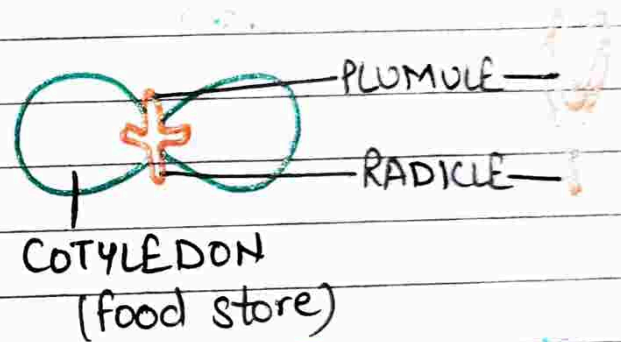 PLUMULE—
RADICLE—
COTYLEDON
(food store)